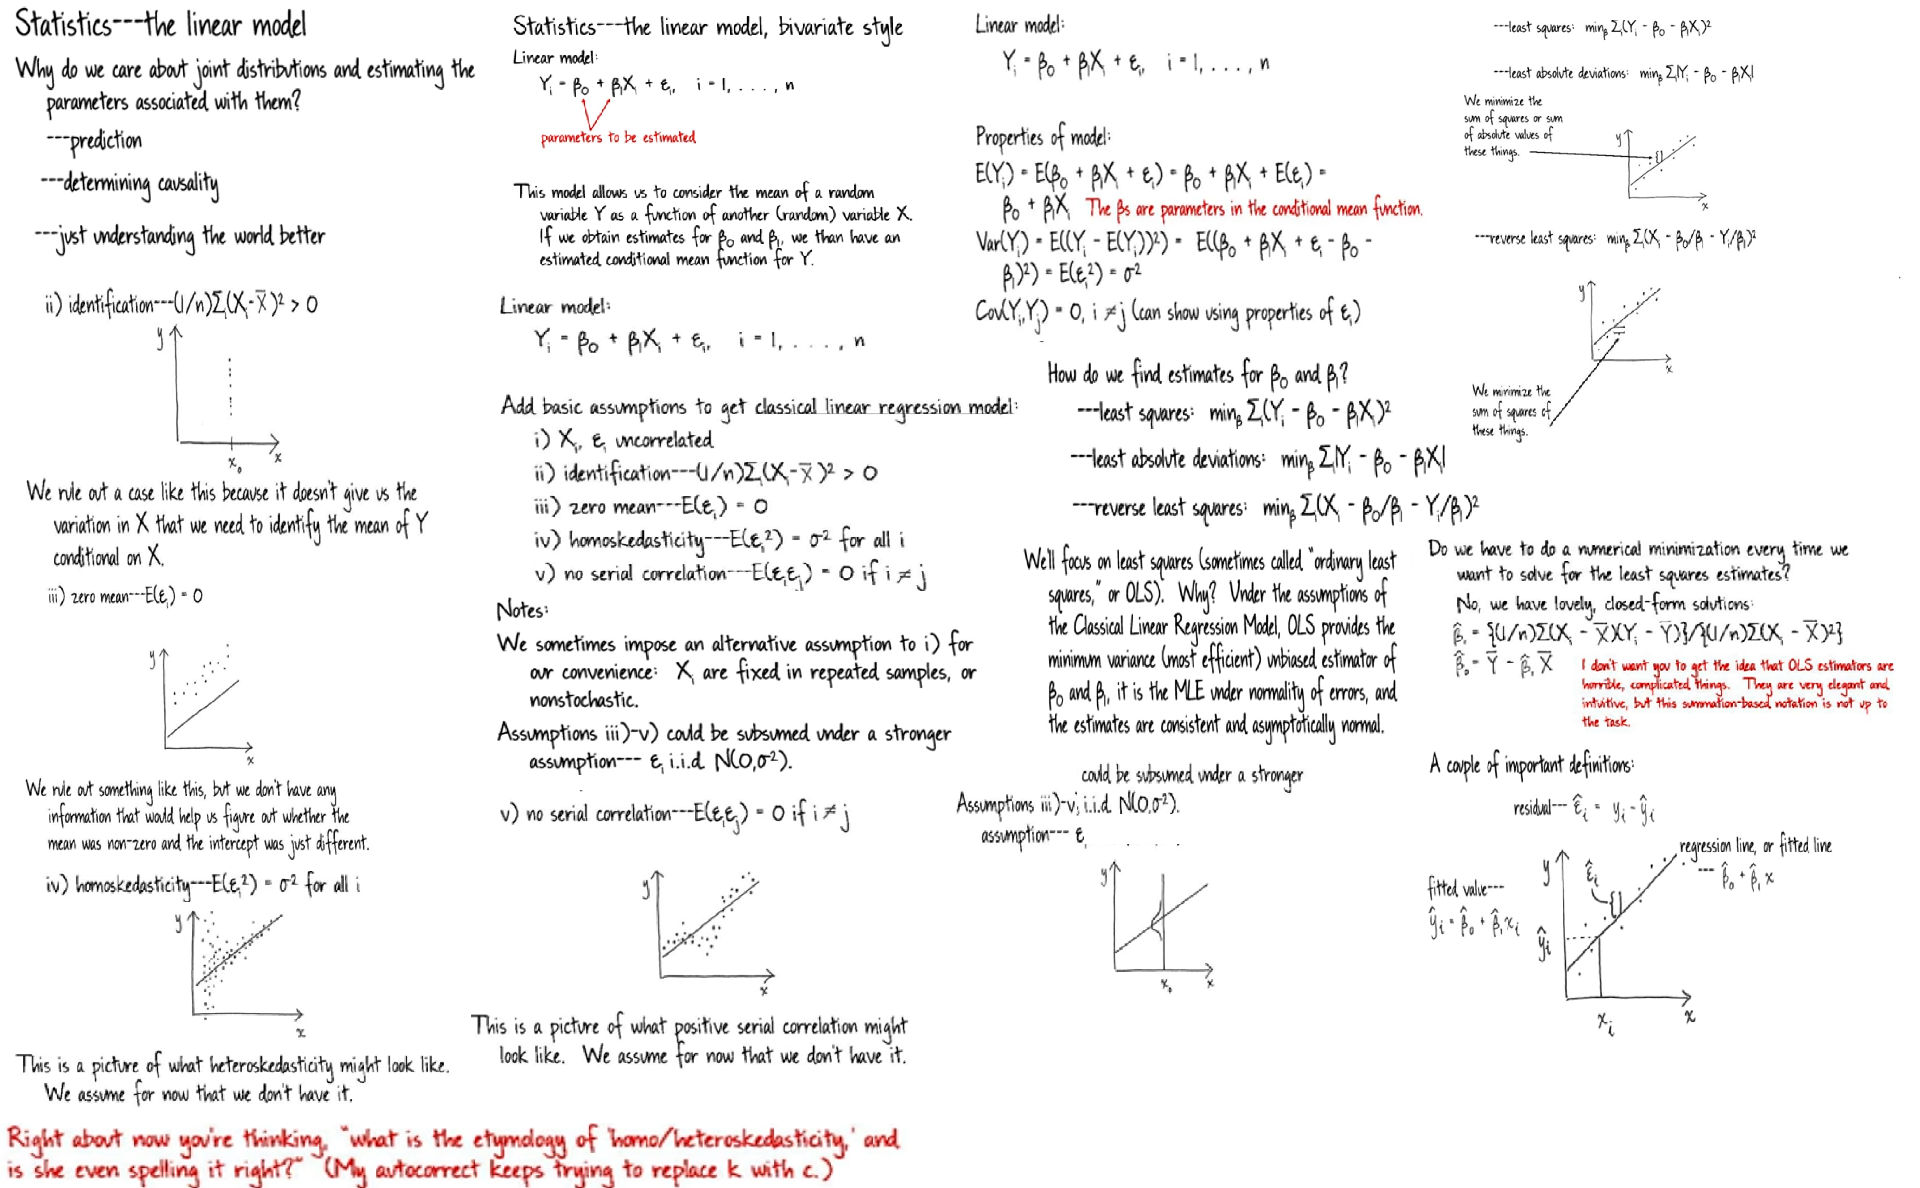 Statistics---the linear model
Why do we care about joint distributions and estimating the
parameters associated with them?
---prediction
---determining causality
---just understanding the world better
ii) identification---(1/n)Σᵢ(Xᵢ-X̄)² > 0
y
x₀
x
We rule out a case like this because it doesn't give us the
variation in X that we need to identify the mean of Y
conditional on X.
iii) zero mean---E(εᵢ) = 0
y
x
We rule out something like this, but we don't have any
information that would help us figure out whether the
mean was non-zero and the intercept was just different.
iv) homoskedasticity---E(εᵢ²) = σ² for all i
y
x
This is a picture of what heteroskedasticity might look like.
We assume for now that we don't have it.
Right about now you're thinking, "what is the etymology of 'homo/heteroskedasticity,' and
is she even spelling it right?" (My autocorrect keeps trying to replace k with c.)
Statistics---the linear model, bivariate style
Linear model:
Yᵢ = β₀ + β₁Xᵢ + εᵢ, i = 1, . . . , n
parameters to be estimated
This model allows us to consider the mean of a random
variable Y as a function of another (random) variable X.
If we obtain estimates for β₀ and β₁, we than have an
estimated conditional mean function for Y.
Linear model:
Yᵢ = β₀ + β₁Xᵢ + εᵢ, i = 1, . . . , n
Add basic assumptions to get classical linear regression model:
i) Xᵢ, εᵢ uncorrelated
ii) identification---(1/n)Σᵢ(Xᵢ-X̄)² > 0
iii) zero mean---E(εᵢ) = 0
iv) homoskedasticity---E(εᵢ²) = σ² for all i
v) no serial correlation---E(εᵢεⱼ) = 0 if i ≠ j
Notes:
We sometimes impose an alternative assumption to i) for
our convenience: Xᵢ are fixed in repeated samples, or
nonstochastic.
Assumptions iii)-v) could be subsumed under a stronger
assumption--- εᵢ i.i.d. N(0,σ²).
v) no serial correlation---E(εᵢεⱼ) = 0 if i ≠ j
y
x
This is a picture of what positive serial correlation might
look like. We assume for now that we don't have it.
Linear model:
Yᵢ = β₀ + β₁Xᵢ + εᵢ, i = 1, . . . , n
Properties of model:
E(Yᵢ) = E(β₀ + β₁Xᵢ + εᵢ) = β₀ + β₁Xᵢ + E(εᵢ) =
β₀ + β₁Xᵢ The βs are parameters in the conditional mean function.
Var(Yᵢ) = E((Yᵢ - E(Yᵢ))²) = E((β₀ + β₁Xᵢ + εᵢ - β₀ -
β₁)²) = E(εᵢ²) = σ²
Cov(Yᵢ,Yⱼ) = 0, i ≠ j (can show using properties of εᵢ)
How do we find estimates for β₀ and β₁?
---least squares: minᵦ Σᵢ(Yᵢ - β₀ - β₁Xᵢ)²
---least absolute deviations: minᵦ Σᵢ|Yᵢ - β₀ - β₁Xᵢ|
---reverse least squares: minᵦ Σᵢ(Xᵢ - β₀/β₁ - Yᵢ/β₁)²
We'll focus on least squares (sometimes called "ordinary least
squares," or OLS). Why? Under the assumptions of
the Classical Linear Regression Model, OLS provides the
minimum variance (most efficient) unbiased estimator of
β₀ and β₁, it is the MLE under normality of errors, and
the estimates are consistent and asymptotically normal.
could be subsumed under a stronger
Assumptions iii)-v; i.i.d. N(0,σ²).
assumption--- εᵢ
y
x₀
x
---least squares: minᵦ Σᵢ(Yᵢ - β₀ - β₁Xᵢ)²
---least absolute deviations: minᵦ Σᵢ|Yᵢ - β₀ - β₁Xᵢ|
We minimize the
sum of squares or sum
of absolute values of
these things.
y
x
---reverse least squares: minᵦ Σᵢ(Xᵢ - β₀/β₁ - Yᵢ/β₁)²
y
x
We minimize the
sum of squares of
these things.
Do we have to do a numerical minimization every time we
want to solve for the least squares estimates?
No, we have lovely, closed-form solutions:
β̂₁ = {(1/n)Σ(Xᵢ - X̄)(Yᵢ - Ȳ)}/{(1/n)Σ(Xᵢ - X̄)²}
β̂₀ = Ȳ - β̂₁ X̄
I don't want you to get the idea that OLS estimators are
horrible, complicated things. They are very elegant and
intuitive, but this summation-based notation is not up to
the task.
A couple of important definitions:
residual--- ε̂ᵢ = yᵢ - ŷᵢ
regression line, or fitted line
--- β̂₀ + β̂₁ x
fitted value---
ŷᵢ = β̂₀ + β̂₁ xᵢ
y
ε̂ᵢ
ŷᵢ
xᵢ
x